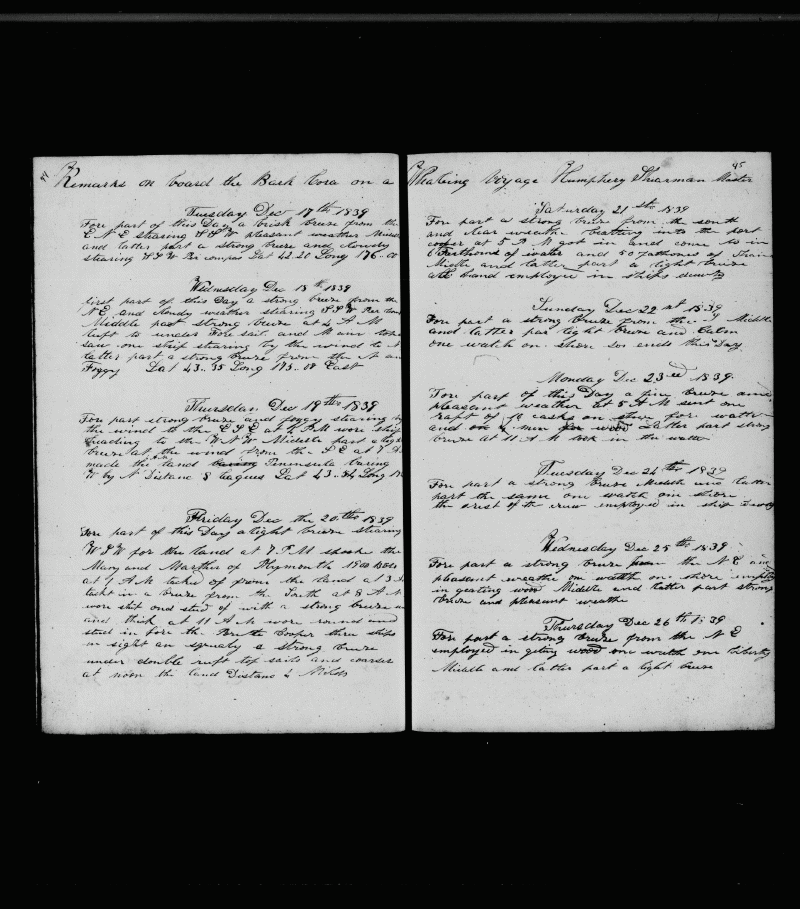 44
Remarks on board the Bark Cora on a
Tuesday Dec 17th 1839
Fore part of this Day a brisk breeze from the
E N E stearing S S W pleasant weather Middle
and latter part a strong breeze and
stearing S S W Per compas Lat 42.21 Long 176.00
Wednesday Dec 18th 1839
first part of this Day a strong breeze from the
N E and weather stearing S S W Per
Middle part strong breeze at 4 A M
luft to under Fore sail and Main
saw one ship stearing by the wind to
latter part a strong breeze from the N
Foggy Lat 43.35 Long 175.00 East
Thursdan Dec 19th 1839
Fore part strong breeze and foggy stearing by
the wind to the E S E at 4 P M wore ship
heading to the W N W Middle part a light
breeze at the wind from the S E at 7 A
made the land Peninsula baring
W by N Distanc 8 leagues Lat 43.34 Long
Friday Dec the 20ths 1839
Fore part of this Day a light breeze stearing
W S W for the land at 7 P M spoke the
Mary and Marther of Plymouth 1900
at 9 A M tacked of from the land at 3 A
tackt in a breeze from the South at 8 A M
wore ship and stud of with a strong breeze
and thick at 11 A M wore round and
stud in fore the three ships
in sight an squaly a strong breeze
under double reeft top sails and coarses
at noon the land Distanc 4 Miles
45
Whaleing Voyage Humphery Shearman Master
Saturday 21 sth 1839
Fore part a strong breeze from the south
and clear weather beatting into the port
at 5 P M got in and come to in
6 Farthoms of water and 50 fathoms of
Midle and latter part a light breeze
all hand employed in ships
Sunday Dec 22 nt 1839
Fore part a strong breeze from the Middle
and latter par light breeze and Calm
one watch on shore so ends this Day
Monday Dec 23ed 1839.
Fore part of this Day a fine breeze and
pleasant weather at 5 A M sent one
raft of casks on shore for watter
and 4 men for wood Latter part strong
breeze at 11 A M took in the watter
Tuesday Dec 24th 1839
Fore part a strong breeze Middle and latter
part the same one watch on shore
the rest of the crew employed in ship
Wednesday Dec 25th 1839
Fore part a strong breeze from the N E and
pleasant weathe one watch on shore
in geating wood Middle and latter part strong
breeze and pleasant weathe
Thursday Dec 26th 1839
Fore part a strong breeze from the N E
employed in geting wood one watch on liberty
Middle and latter part a light breeze